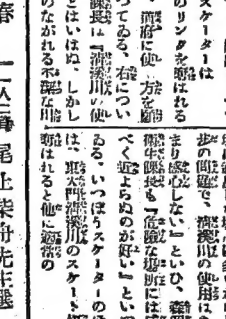 スケーターは
のリンクを奪はれる
、濟府に使一方を
つてゐる、右につい
課長は『淸溪川の使
とはいはぬ、しかし
のながれる不潔な川
步の問題で、淸溪川の使用は
まり感心しない』といひ、
衞生課長も『危險な場所には
べく近よらぬのが好い』とい
ゐる、いつぽうスケーターの
は、東大門淸溪川のスケート
奪はれると他に適當の
春
尾上柴舟先生選